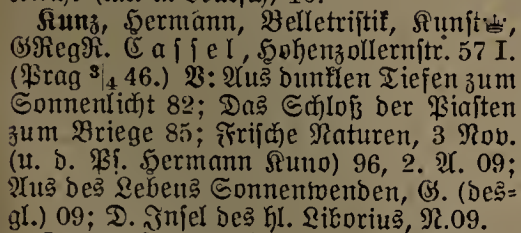 Kunz, Hermann, Belletristik, Kunst,
GRegR. Cassel, Hohenzollernstr. 57 I.
(Prag 3/4 46.) V: Aus dunklen Tiefen zum
Sonnenlicht 82; Das Schloß der Piasten
zum Briege 85; Frische Naturen, 3 Nov.
(u. d. Ps. Hermann Kuno) 96, 2. A. 09;
Aus des Lebens Sonnenwenden, G. (des-
gl.) 09; D. Insel des hl. Liborius, N. 09.